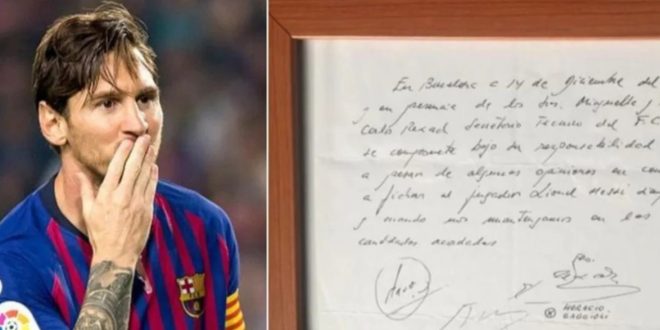 En Barcelona a 14 de Diciembre del
y en presencia de los Sres. Minguella y
Carlos Rexach Secretario Tecnico del F.C
se compromete bajo su responsabilidad
a pesar de algunas opiniones en con
a fichar al jugador Lionel Messi
y cuando nos mantengamos en las
cantidades acordadas
HORACIO
GAGGIOLI
LaLiga